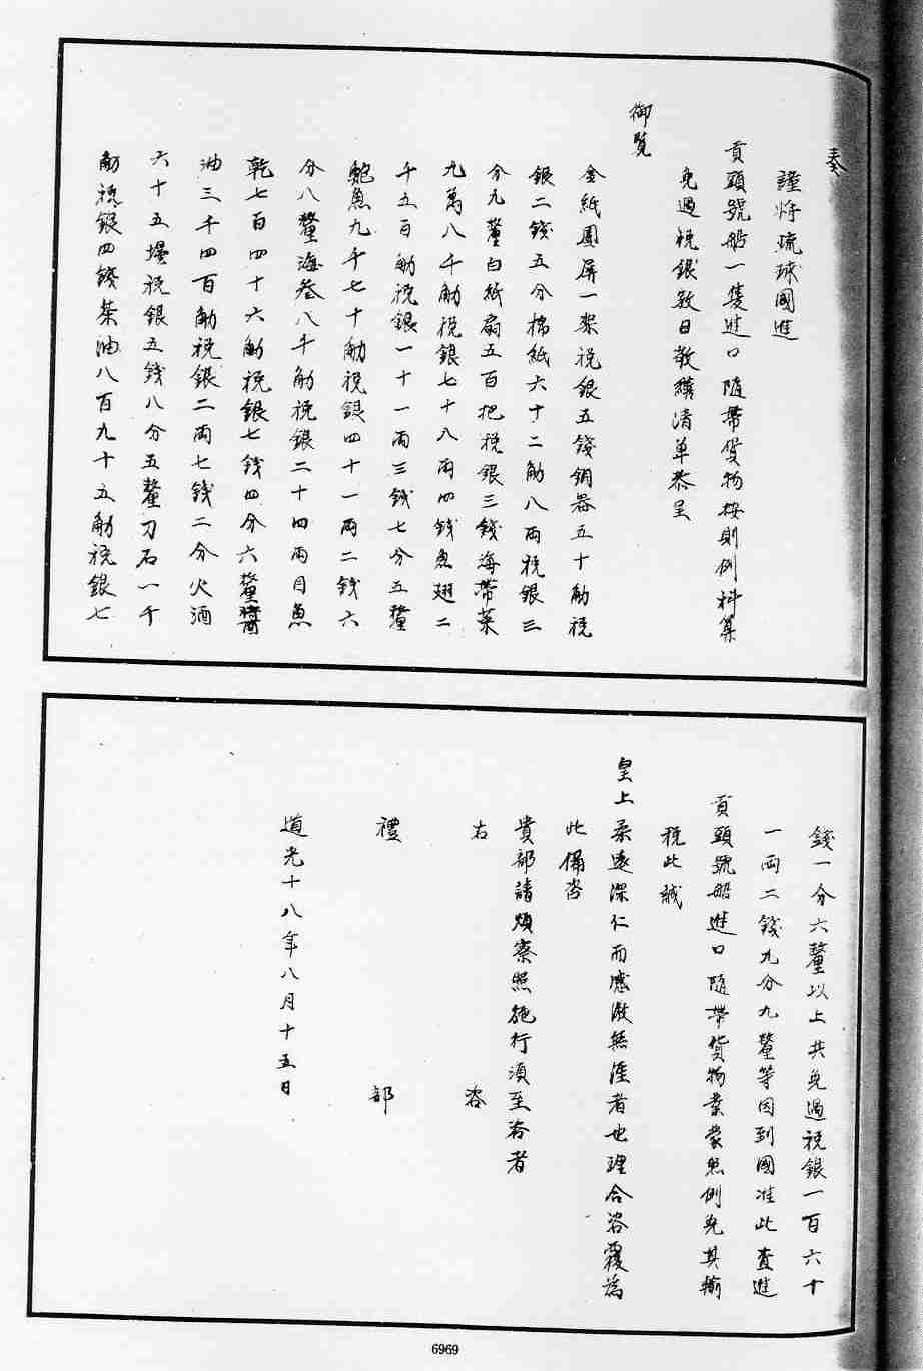 奏
謹將琉球國進
貢頭號船一隻進口隨帶貨物按則例科算
免過稅銀數目敬繕清單恭呈
御覽
金紙圍屏一架稅銀五錢銅器五十觔稅
銀二錢五分棉紙六十二觔八兩稅銀三
分九釐白紙扇五百把稅銀三錢海帶菜
九萬八千觔稅銀七十八兩四錢魚翅二
千五百觔稅銀一十一兩三錢七分五釐
鮑魚九千七十觔稅銀四十一兩二錢六
分八釐海參八千觔稅銀二十四兩目魚
乾七百四十六觔稅銀七錢四分六釐醬
油三千四百觔稅銀二兩七錢二分火酒
六十五壜稅銀五錢八分五釐刀石一千
觔稅銀四錢茶油八百九十五觔稅銀七
錢一分六釐以上共免過稅銀一百六十
一兩二錢九分九釐等因到國准此查進
貢頭號船進口隨帶貨物業蒙照例免其輸
稅此誠
皇上柔遠深仁而感激無涯者也理合咨覆為
此備咨
貴部請煩察照施行須至咨者
右咨
禮部
道光十八年八月十五日
6969